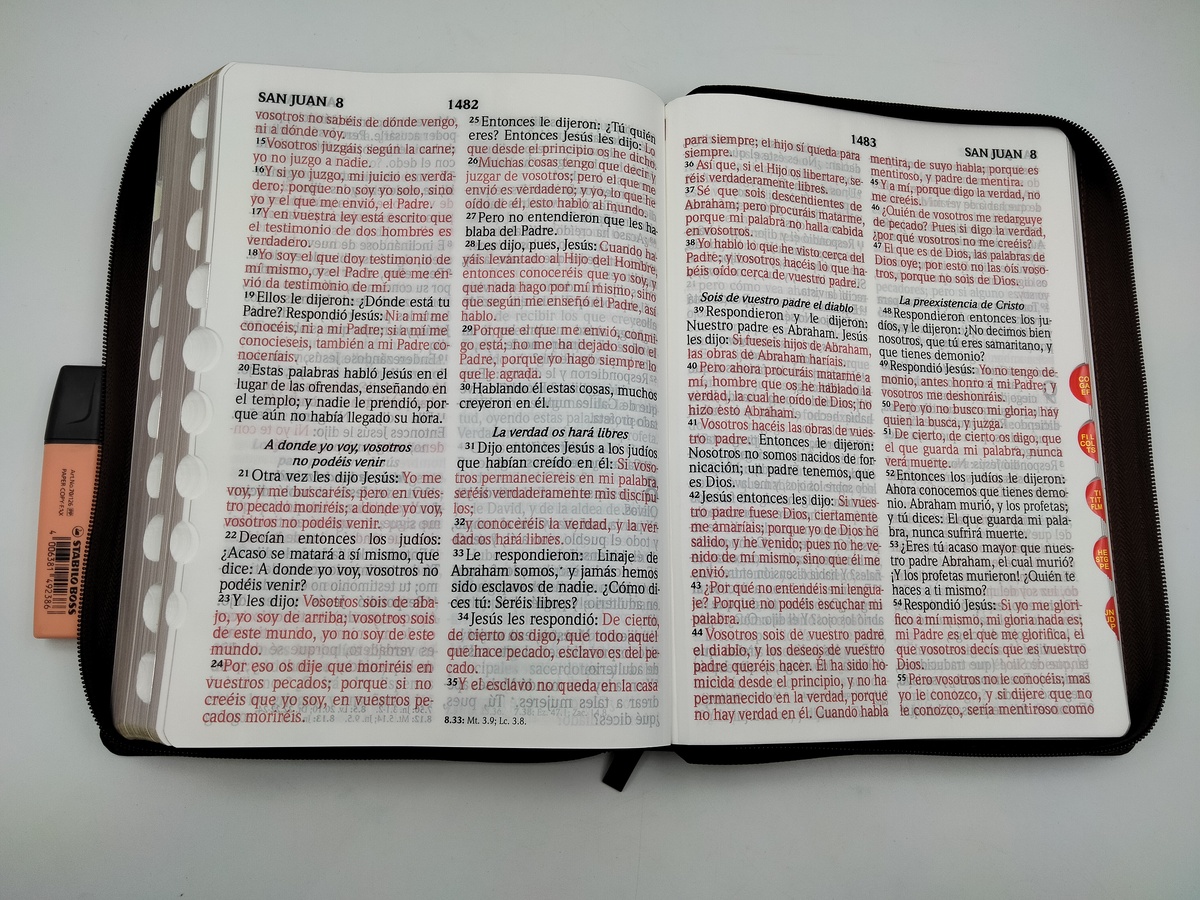 SAN JUAN 8
1482
vosotros no sabéis de dónde vengo,
ni a dónde voy.
15Vosotros juzgáis según la carne;
yo no juzgo a nadie.
16Y si yo juzgo, mi juicio es verda-
dero; porque no soy yo solo, sino
yo y el que me envió, el Padre.
17Y en vuestra ley está escrito que
el testimonio de dos hombres es
verdadero.
18Yo soy el que doy testimonio de
mí mismo, y el Padre que me en-
vió da testimonio de mí.
19Ellos le dijeron: ¿Dónde está tu
Padre? Respondió Jesús: Ni a mí me
conocéis, ni a mi Padre; si a mí me
conocieseis, también a mi Padre co-
noceríais.
20Estas palabras habló Jesús en el
lugar de las ofrendas, enseñando en
el templo; y nadie le prendió, por-
que aún no había llegado su hora.
A donde yo voy, vosotros
no podéis venir
21Otra vez les dijo Jesús: Yo me
voy, y me buscaréis, pero en vues-
tro pecado moriréis; a donde yo voy,
vosotros no podéis venir.
22Decían entonces los judíos:
¿Acaso se matará a sí mismo, que
dice: A donde yo voy, vosotros no
podéis venir?
23Y les dijo: Vosotros sois de aba-
jo, yo soy de arriba; vosotros sois
de este mundo, yo no soy de este
mundo.
24Por eso os dije que moriréis en
vuestros pecados; porque si no
creéis que yo soy, en vuestros pe-
cados moriréis.
25Entonces le dijeron: ¿Tú quién
eres? Entonces Jesús les dijo: Lo
que desde el principio os he dicho.
26Muchas cosas tengo que decir y
juzgar de vosotros; pero el que me
envió es verdadero; y yo, lo que he
oído de él, esto hablo al mundo.
27Pero no entendieron que les ha-
blaba del Padre.
28Les dijo, pues, Jesús: Cuando ha-
yáis levantado al Hijo del Hombre,
entonces conoceréis que yo soy, y
que nada hago por mí mismo, sino
que según me enseñó el Padre, así
hablo.
29Porque el que me envió, conmi-
go está; no me ha dejado solo el
Padre, porque yo hago siempre lo
que le agrada.
30Hablando él estas cosas, muchos
creyeron en él.
La verdad os hará libres
31Dijo entonces Jesús a los judíos
que habían creído en él: Si voso-
tros permaneciereis en mi palabra,
seréis verdaderamente mis discípu-
los;
32y conoceréis la verdad, y la ver-
dad os hará libres.
33Le respondieron: Linaje de
Abraham somos,* y jamás hemos
sido esclavos de nadie. ¿Cómo di-
ces tú: Seréis libres?
34Jesús les respondió: De cierto,
de cierto os digo, que todo aquel
que hace pecado, esclavo es del pe-
cado.
35Y el esclavo no queda en la casa
8.33: Mt. 3.9; Lc. 3.8.
1483
SAN JUAN 8
para siempre; el hijo sí queda para
siempre.
36Así que, si el Hijo os libertare, se-
réis verdaderamente libres.
37Sé que sois descendientes de
Abraham; pero procuráis matarme,
porque mi palabra no halla cabida
en vosotros.
38Yo hablo lo que he visto cerca del
Padre; y vosotros hacéis lo que ha-
béis oído cerca de vuestro padre.
Sois de vuestro padre el diablo
39Respondieron y le dijeron:
Nuestro padre es Abraham. Jesús
les dijo: Si fueseis hijos de Abraham,
las obras de Abraham haríais.
40Pero ahora procuráis matarme a
mí, hombre que os he hablado la
verdad, la cual he oído de Dios; no
hizo esto Abraham.
41Vosotros hacéis las obras de vues-
tro padre. Entonces le dijeron:
Nosotros no somos nacidos de for-
nicación; un padre tenemos, que
es Dios.
42Jesús entonces les dijo: Si vues-
tro padre fuese Dios, ciertamente
me amaríais; porque yo de Dios he
salido, y he venido; pues no he ve-
nido de mí mismo, sino que él me
envió.
43¿Por qué no entendéis mi lengua-
je? Porque no podéis escuchar mi
palabra.
44Vosotros sois de vuestro padre
el diablo, y los deseos de vuestro
padre queréis hacer. Él ha sido ho-
micida desde el principio, y no ha
permanecido en la verdad, porque
no hay verdad en él. Cuando habla
mentira, de suyo habla; porque es
mentiroso, y padre de mentira.
45Y a mí, porque digo la verdad, no
me creéis.
46¿Quién de vosotros me redarguye
de pecado? Pues si digo la verdad,
¿por qué vosotros no me creéis?
47El que es de Dios, las palabras de
Dios oye; por esto no las oís voso-
tros, porque no sois de Dios.
La preexistencia de Cristo
48Respondieron entonces los ju-
díos, y le dijeron: ¿No decimos bien
nosotros, que tú eres samaritano, y
que tienes demonio?
49Respondió Jesús: Yo no tengo de-
monio, antes honro a mi Padre; y
vosotros me deshonráis.
50Pero yo no busco mi gloria; hay
quien la busca, y juzga.
51De cierto, de cierto os digo, que
el que guarda mi palabra, nunca
verá muerte.
52Entonces los judíos le dijeron:
Ahora conocemos que tienes demo-
nio. Abraham murió, y los profetas;
y tú dices: El que guarda mi pala-
bra, nunca sufrirá muerte.
53¿Eres tú acaso mayor que nues-
tro padre Abraham, el cual murió?
¡Y los profetas murieron! ¿Quién te
haces a ti mismo?
54Respondió Jesús: Si yo me glori-
fico a mí mismo, mi gloria nada es;
mi Padre es el que me glorifica, el
que vosotros decís que es vuestro
Dios.
55Pero vosotros no le conocéis; mas
yo le conozco, y si dijere que no
le conozco, sería mentiroso como
STABILO BOSS
4 006381 492386